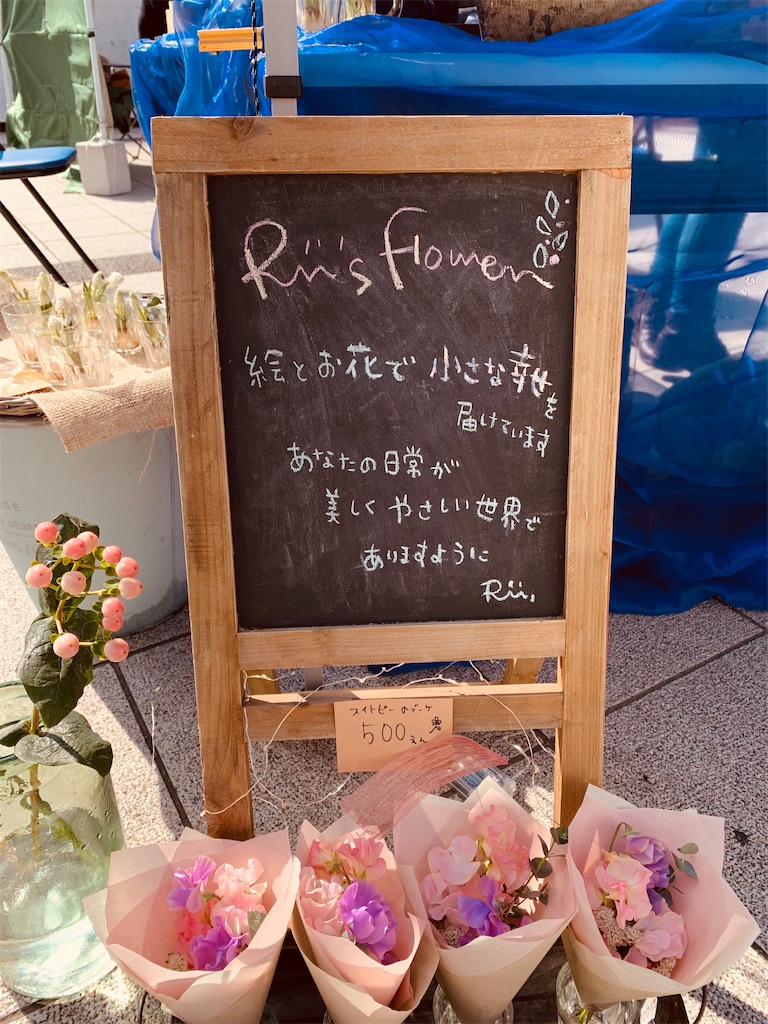 Rii's flower
絵とお花で 小さな幸せを
届けています
あなたの日常が
美しく やさしい世界で
ありますように
Rii.
スイトピーのブーケ
500えん